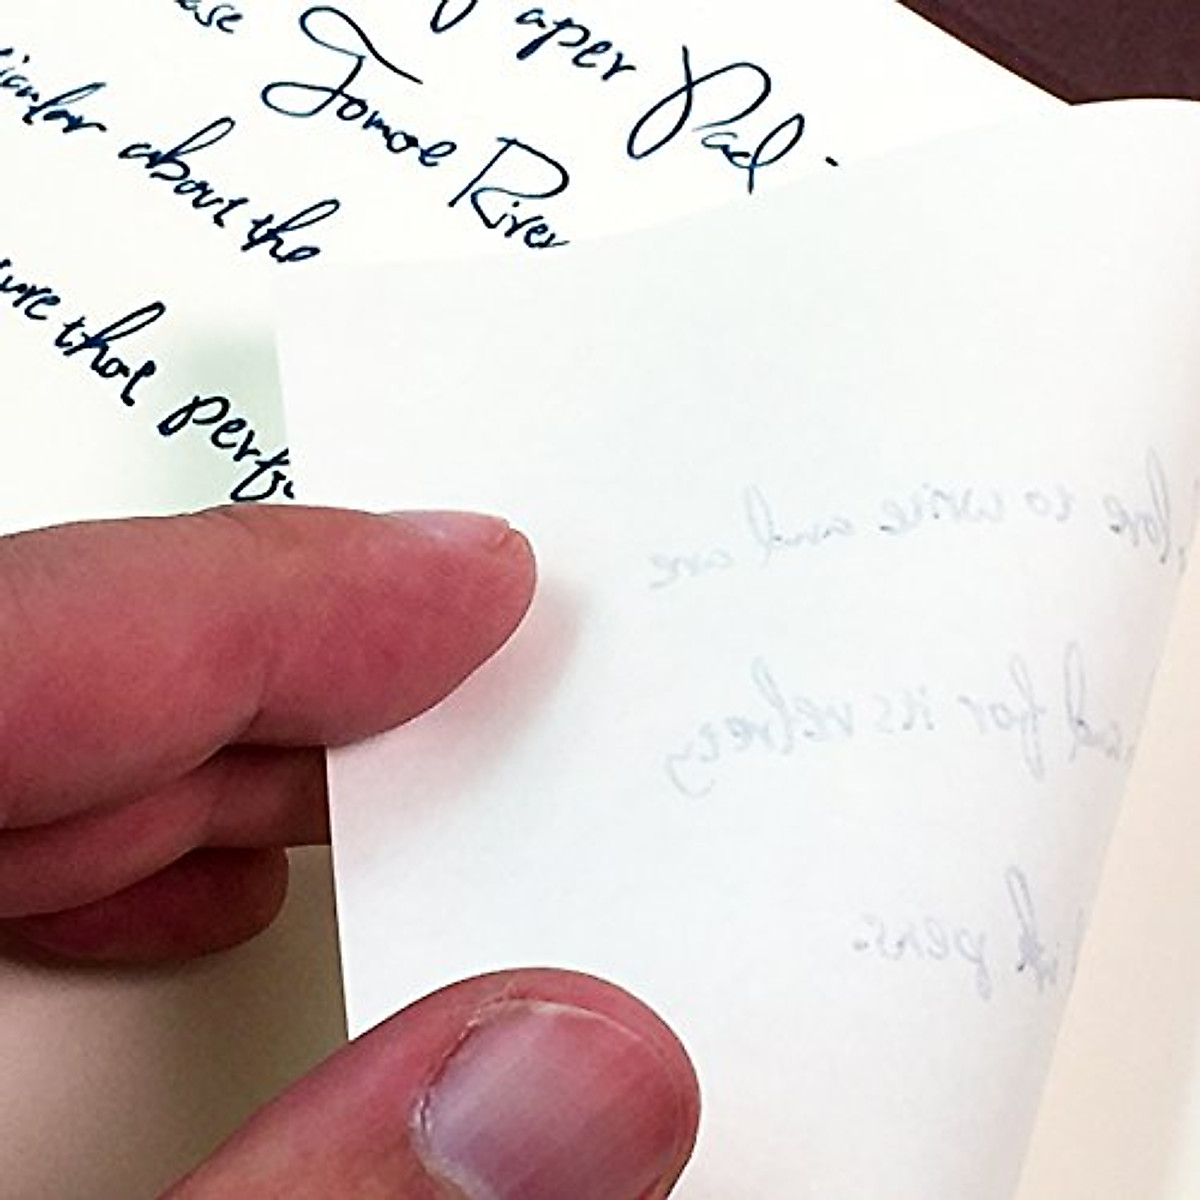 aper Pad.
Tomoe River
about the
that
love to write and are
and for its velvety
ink pens.